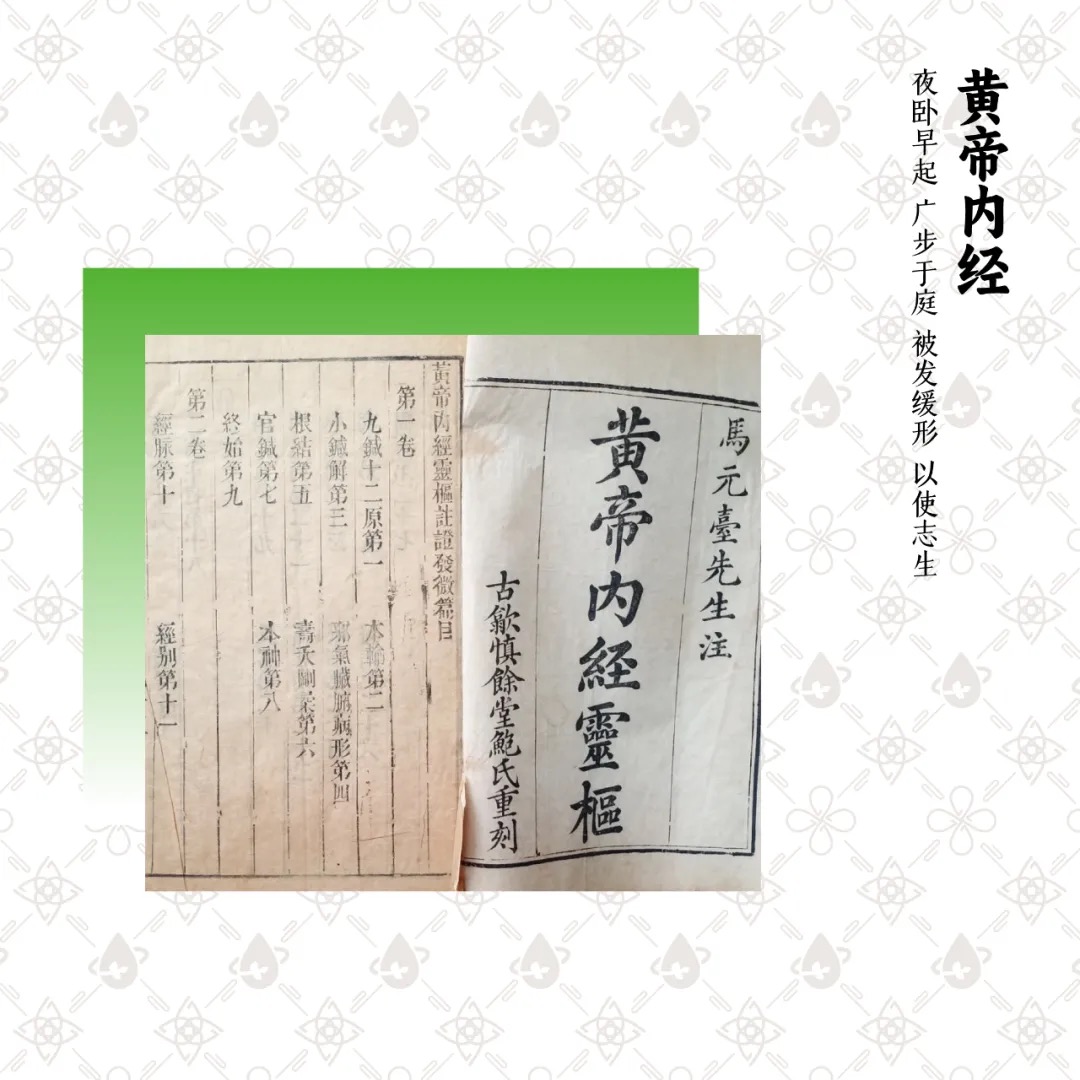 黄帝内经
夜卧早起 广步于庭 被发缓形 以使志生
馬元臺先生注
黄帝内經靈樞
古歙慎餘堂鮑氏重刻
黃帝内經靈樞註證發微篇目
第一卷
九鍼十二原第一 本輸第二
小鍼解第三 邪氣臟腑病形第四
根結第五 壽夭剛柔第六
官鍼第七 本神第八
終始第九
第二卷
經脉第十 經别第十一